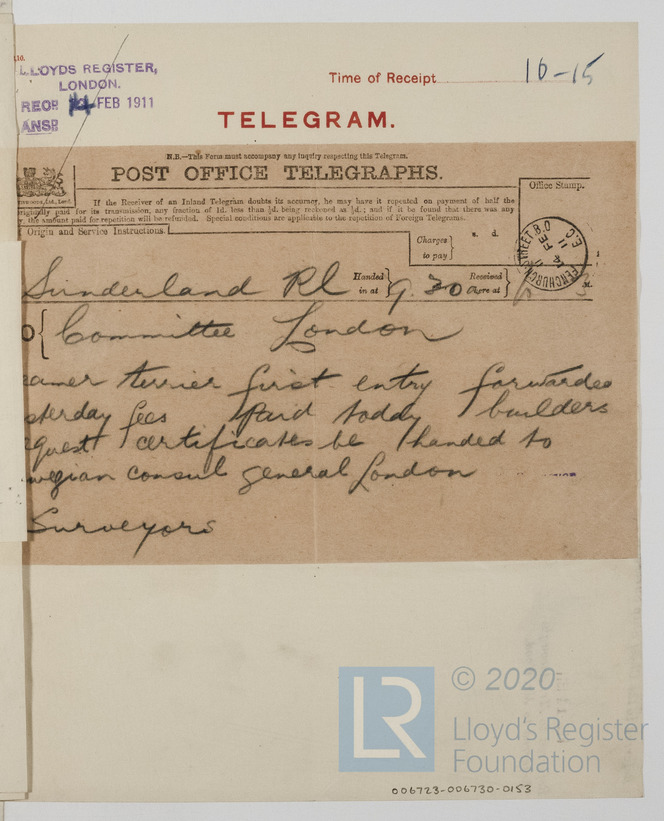 LLOYDS REGISTER,
LONDON.
REOP 14 FEB 1911
ANSR
Time of Receipt 10-15
TELEGRAM.
N.B.—This Form must accompany any inquiry respecting this Telegram.
POST OFFICE TELEGRAPHS.
If the Receiver of an Inland Telegram doubts its accuracy, he may have it repeated on payment of half the
originally paid for its transmission, any fraction of 1d. less than ½d. being reckoned as ½d.; and if it be found that there was any
, the amount paid for repetition will be refunded. Special conditions are applicable to the repetition of Foreign Telegrams.
Office Stamp.
Origin and Service Instructions.
Charges to pay
s. d.
FENCHURCH STREET B.O
E.C
FE
11
Sunderland Rl
Handed in at 9.30a
Received here at
M.
O { Committee London
eamer terrier first entry forwarded
sterday fees paid today builders
quest certificates be handed to
wegian consul general London
Surveyors
LR
© 2020
Lloyd's Register
Foundation
006723-006730-0153